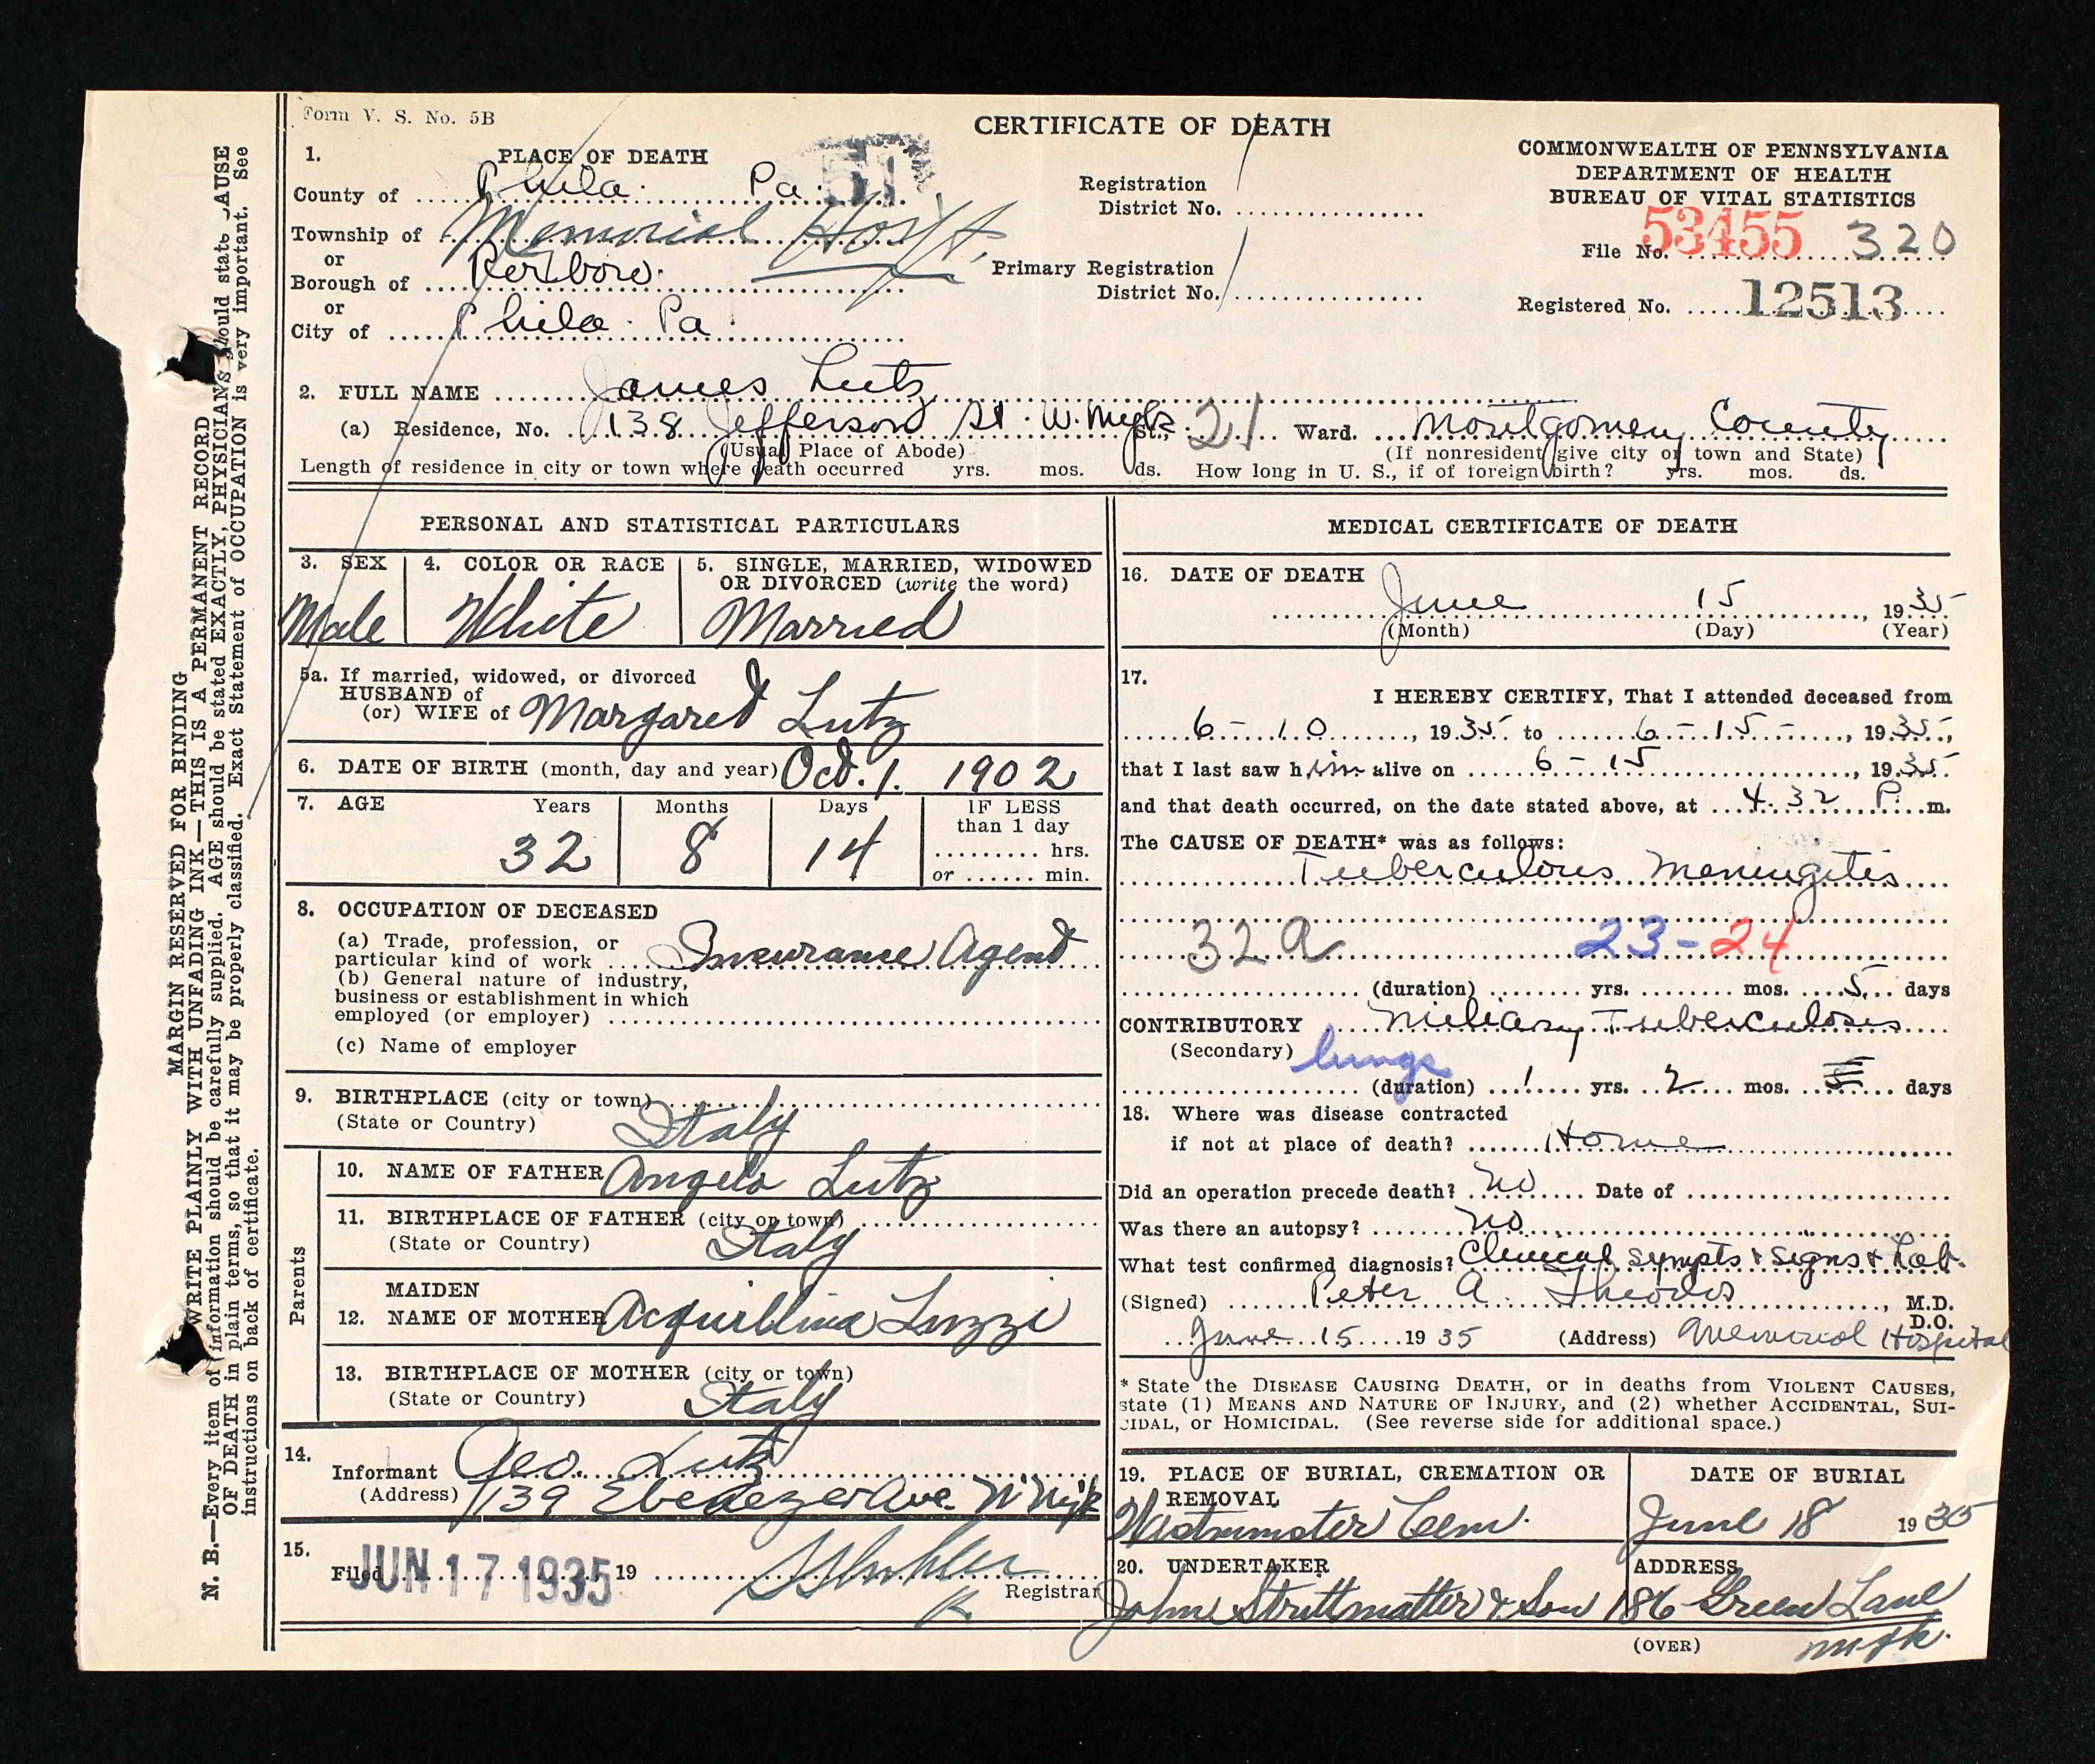 Form V. S. No. 5B
CERTIFICATE OF DEATH
COMMONWEALTH OF PENNSYLVANIA
DEPARTMENT OF HEALTH
BUREAU OF VITAL STATISTICS
File No. 53455 320
Registered No. 12513
1. PLACE OF DEATH
51
County of Phila. Pa.
Township of Memorial Hosp't.
or
Borough of Roxboro.
or
City of Phila. Pa.
Registration
District No.
Primary Registration
District No.
2. FULL NAME James Lutz
(a) Residence, No. 138 Jefferson St. W. Myk St., 21 Ward. Montgomery County
(Usual Place of Abode)
(If nonresident give city or town and State)
Length of residence in city or town where death occurred yrs. mos. ds. How long in U. S., if of foreign birth? yrs. mos. ds.
PERSONAL AND STATISTICAL PARTICULARS
3. SEX
Male
4. COLOR OR RACE
White
5. SINGLE, MARRIED, WIDOWED
OR DIVORCED (write the word)
Married
5a. If married, widowed, or divorced
HUSBAND of
(or) WIFE of Margaret Lutz
6. DATE OF BIRTH (month, day and year) Oct. 1. 1902
7. AGE Years Months Days IF LESS
than 1 day
32 8 14
hrs.
or min.
8. OCCUPATION OF DECEASED
(a) Trade, profession, or
particular kind of work Insurance Agent
(b) General nature of industry,
business or establishment in which
employed (or employer)
(c) Name of employer
9. BIRTHPLACE (city or town)
(State or Country) Italy
Parents
10. NAME OF FATHER Angelo Lutz
11. BIRTHPLACE OF FATHER (city or town)
(State or Country) Italy
MAIDEN
12. NAME OF MOTHER Acquillina Luzzi
13. BIRTHPLACE OF MOTHER (city or town)
(State or Country) Italy
14.
Informant Geo. Lutz
(Address) 139 Ebenezer Ave. W Myk
15.
Filed JUN 17 1935 19
Registrar
MEDICAL CERTIFICATE OF DEATH
16. DATE OF DEATH
June 15, 1935
(Month) (Day) (Year)
17.
I HEREBY CERTIFY, That I attended deceased from
6-10, 1935 to 6-15-, 1935,
that I last saw him alive on 6-15, 1935.
and that death occurred, on the date stated above, at 4.32 P. m.
The CAUSE OF DEATH* was as follows:
Tuberculous Meningitis
32a 23-24
(duration) yrs. mos. 5 days
CONTRIBUTORY Miliary Tuberculosis
(Secondary) lungs
(duration) 1 yrs. 2 mos. days
18. Where was disease contracted
if not at place of death? Home
Did an operation precede death? No Date of
Was there an autopsy? No
What test confirmed diagnosis? Clinical sympts & signs & Lab.
(Signed) Peter A. Theodos, M.D.
D.O.
June 15 1935 (Address) Memorial Hospital
* State the DISEASE CAUSING DEATH, or in deaths from VIOLENT CAUSES,
state (1) MEANS AND NATURE OF INJURY, and (2) whether ACCIDENTAL, SUI-
CIDAL, or HOMICIDAL. (See reverse side for additional space.)
19. PLACE OF BURIAL, CREMATION OR
REMOVAL
Westminster Cem.
DATE OF BURIAL
June 18 1935
20. UNDERTAKER
John Strittmatter & Son
ADDRESS
186 Green Lane
Myk.
(OVER)
MARGIN RESERVED FOR BINDING
WRITE PLAINLY WITH UNFADING INK—THIS IS A PERMANENT RECORD
N. B.—Every item of information should be carefully supplied. AGE should be stated EXACTLY. PHYSICIANS should state CAUSE
OF DEATH in plain terms, so that it may be properly classified. Exact Statement of OCCUPATION is very important. See
instructions on back of certificate.